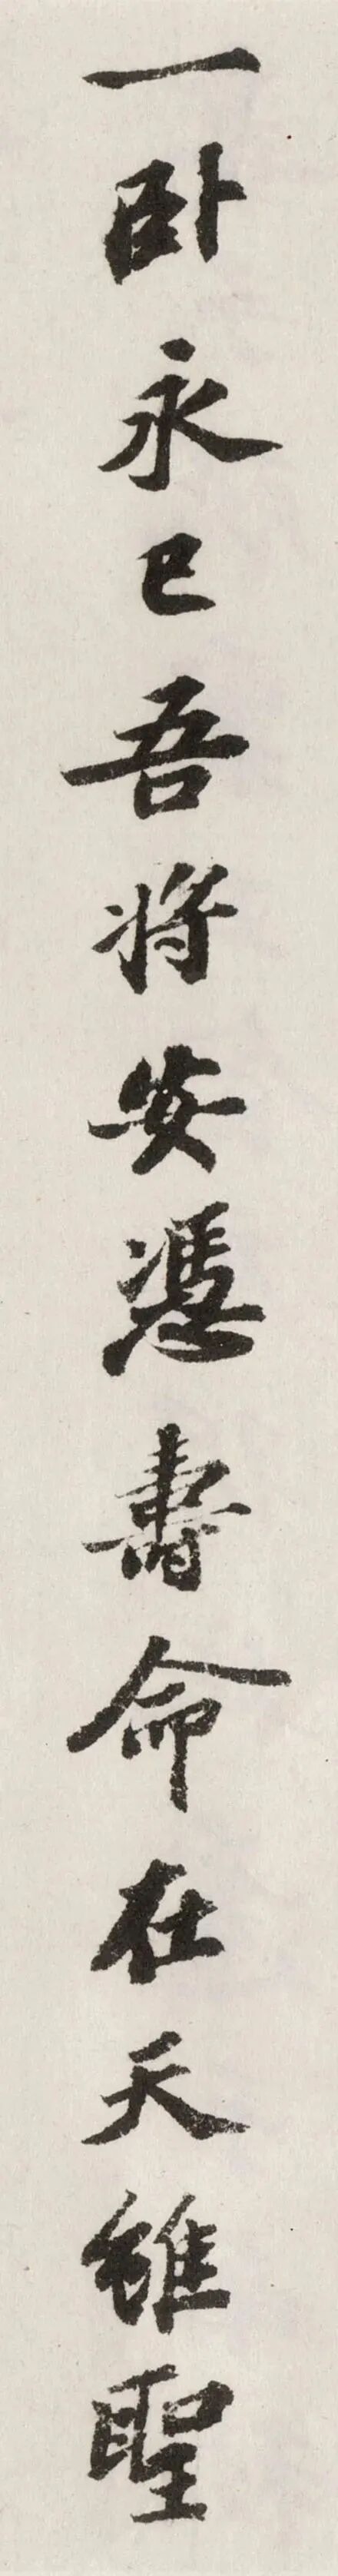 一卧永已吾將安憑壽命在天雖聖